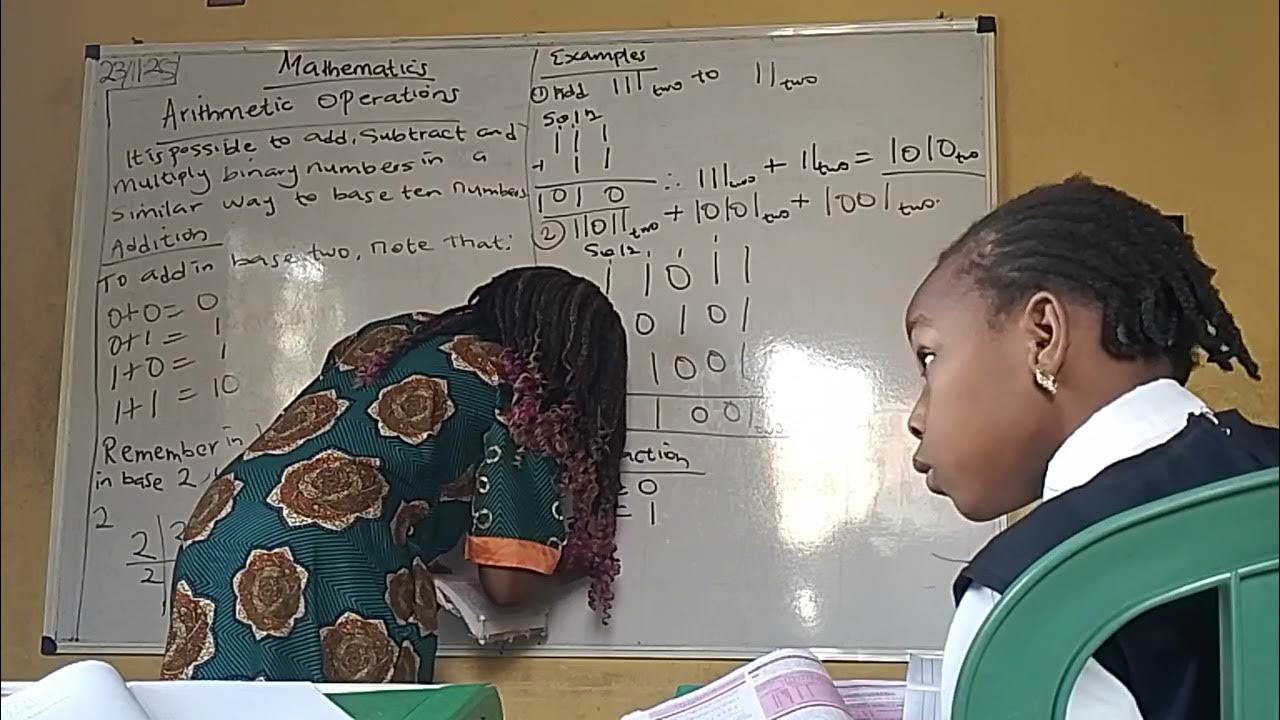 23/1/25
Mathematics
Arithmetic Operations
It is possible to add, Subtract and
multiply binary numbers in a
similar way to base ten numbers
Addition
To add in base two, note that:
0+0= 0
0+1 = 1
1+0= 1
1+1 = 10
Remember in
in base 2
2
2
2
Examples
① Add 111two to 11two
Soln
1 1 1
+ 1 1
1 0 1 0
∴ 111two + 11two = 1010two
② 11011two + 10101two + 1001two
Soln
1 1 0 1 1
0 1 0 1
1 0 0 1
1 0 0
action
= 0
= 1